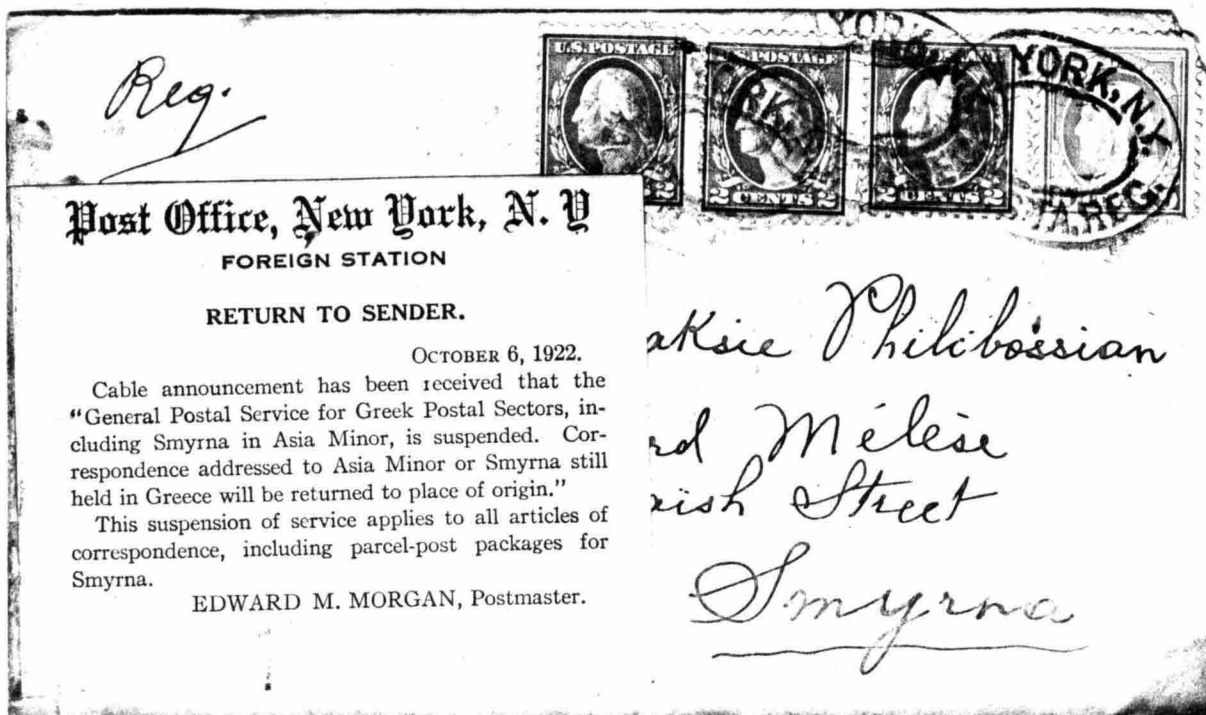 Reg.
U.S.POSTAGE
U.S.POSTAGE
2 CENTS 2
2 CENTS 2
YORK, N.Y.
STA. REG.
Post Office, New York, N. Y
FOREIGN STATION
RETURN TO SENDER.
OCTOBER 6, 1922.
Cable announcement has been received that the
“General Postal Service for Greek Postal Sectors, in-
cluding Smyrna in Asia Minor, is suspended. Cor-
respondence addressed to Asia Minor or Smyrna still
held in Greece will be returned to place of origin.”
This suspension of service applies to all articles of
correspondence, including parcel-post packages for
Smyrna.
EDWARD M. MORGAN, Postmaster.
aksie Philibossian
rd Mélèse
Street
Smyrna